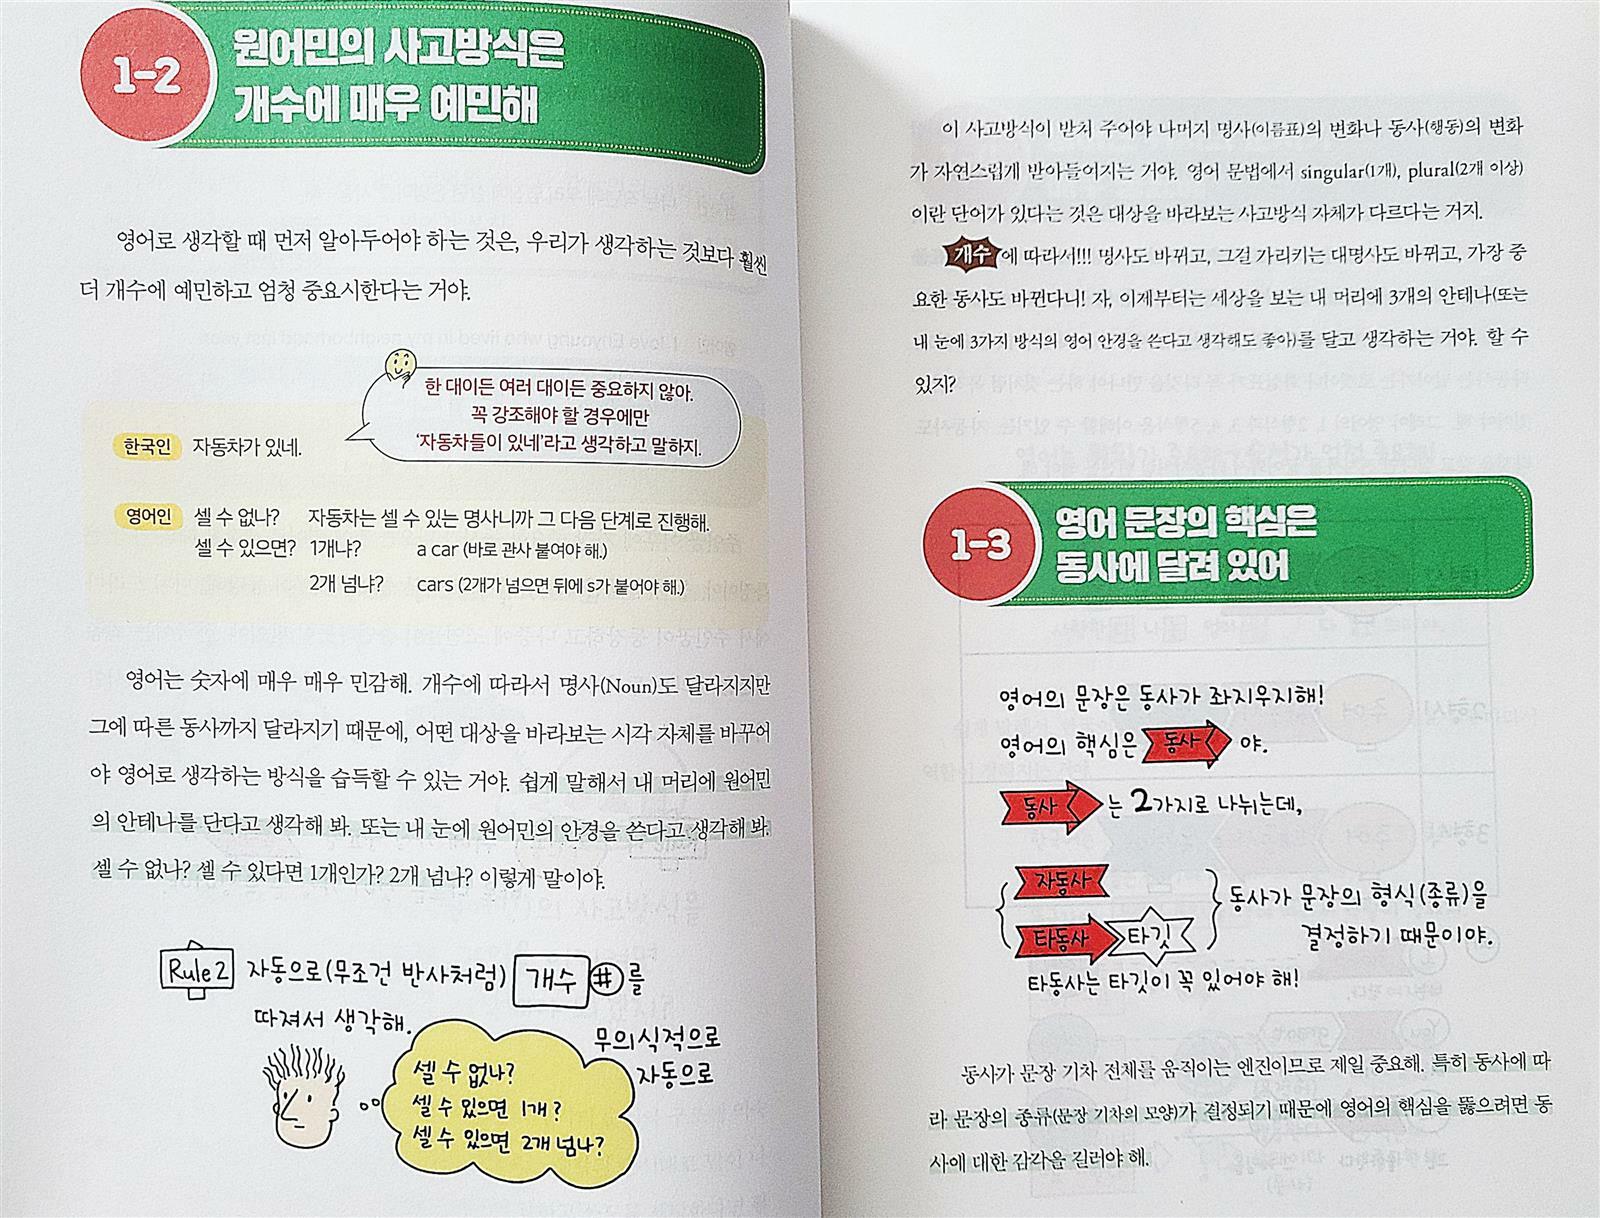 1-2
원어민의 사고방식은
개수에 매우 예민해
영어로 생각할 때 먼저 알아두어야 하는 것은, 우리가 생각하는 것보다 훨씬
더 개수에 예민하고 엄청 중요시한다는 거야.
한 대이든 여러 대이든 중요하지 않아.
꼭 강조해야 할 경우에만
‘자동차들이 있네’라고 생각하고 말하지.
한국인 자동차가 있네.
영어인 셀 수 없나? 자동차는 셀 수 있는 명사니까 그 다음 단계로 진행해.
셀 수 있으면? 1개냐? a car (바로 관사 붙여야 해.)
2개 넘냐? cars (2개가 넘으면 뒤에 s가 붙어야 해.)
영어는 숫자에 매우 매우 민감해. 개수에 따라서 명사(Noun)도 달라지지만
그에 따른 동사까지 달라지기 때문에, 어떤 대상을 바라보는 시각 자체를 바꾸어
야 영어로 생각하는 방식을 습득할 수 있는 거야. 쉽게 말해서 내 머리에 원어민
의 안테나를 단다고 생각해 봐. 또는 내 눈에 원어민의 안경을 쓴다고 생각해 봐.
셀 수 없나? 셀 수 있다면 1개인가? 2개 넘나? 이렇게 말이야.
Rule 2 자동으로(무조건 반사처럼) 개수 #를
따져서 생각해.
무의식적으로
자동으로
셀 수 없나?
셀 수 있으면 1개?
셀 수 있으면 2개 넘나?
이 사고방식이 받쳐 주어야 나머지 명사(이름표)의 변화나 동사(행동)의 변화
가 자연스럽게 받아들여지는 거야. 영어 문법에서 singular(1개), plural(2개 이상)
이란 단어가 있다는 것은 대상을 바라보는 사고방식 자체가 다르다는 거지.
개수에 따라서!!! 명사도 바뀌고, 그걸 가리키는 대명사도 바뀌고, 가장 중
요한 동사도 바뀐다니! 자, 이제부터는 세상을 보는 내 머리에 3개의 안테나(또는
내 눈에 3가지 방식의 영어 안경을 쓴다고 생각해도 좋아)를 달고 생각하는 거야. 할 수
있지?
1-3
영어 문장의 핵심은
동사에 달려 있어
영어의 문장은 동사가 좌지우지해!
영어의 핵심은 동사 야.
동사 는 2가지로 나뉘는데,
자동사
타동사 타깃
동사가 문장의 형식(종류)을
결정하기 때문이야.
타동사는 타깃이 꼭 있어야 해!
동사가 문장 기차 전체를 움직이는 엔진이므로 제일 중요해. 특히 동사에 따
라 문장의 종류(문장 기차의 모양)가 결정되기 때문에 영어의 핵심을 뚫으려면 동
사에 대한 감각을 길러야 해.